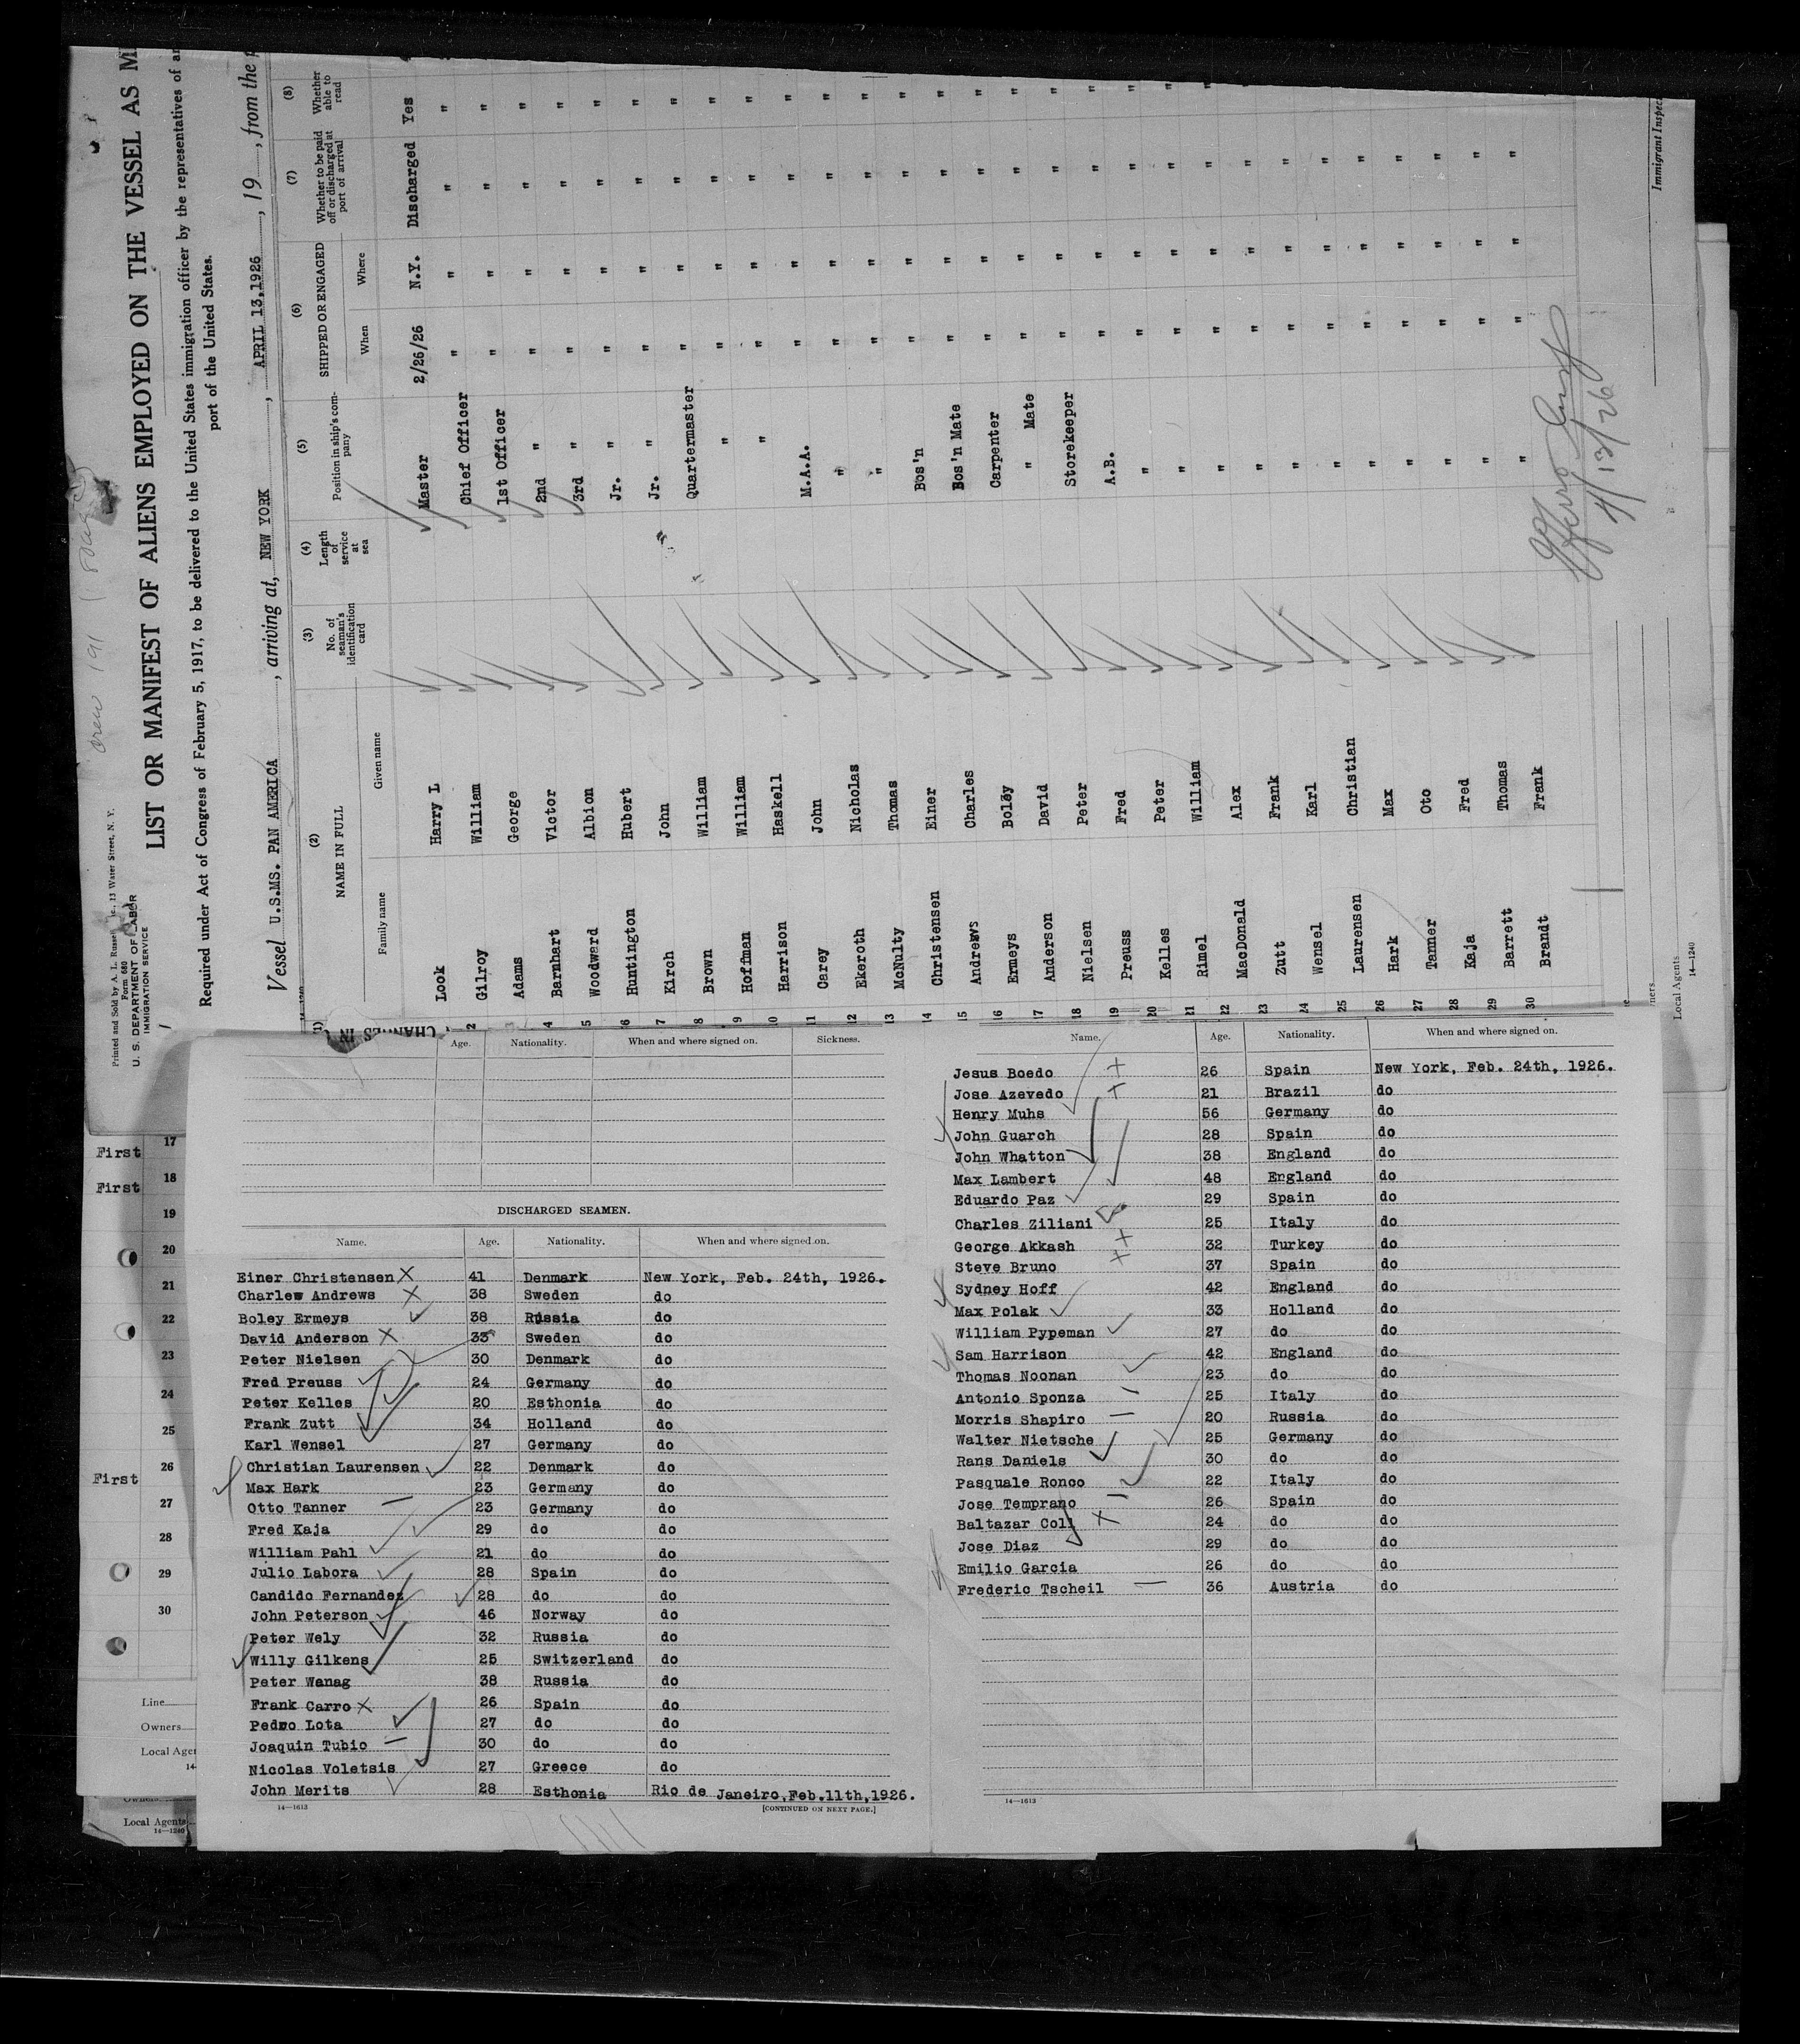 crew 191
Printed and Sold by A. L. Russell Inc., 13 Water Street, N. Y.
Form 680
U. S. DEPARTMENT OF LABOR
IMMIGRATION SERVICE
LIST OR MANIFEST OF ALIENS EMPLOYED ON THE VESSEL AS M
Required under Act of Congress of February 5, 1917, to be delivered to the United States immigration officer by the representatives of an
port of the United States.
Vessel U.S.MS. PAN AMERICA, arriving at, NEW YORK, APRIL 13,1926, 19, from the p
(1) (2) (3) (4) (5) (6) (7) (8)
NAME IN FULL
Family name Given name
No. of seaman's identification card
Length of service at sea
Position in ship's company
SHIPPED OR ENGAGED
When Where
Whether to be paid off or discharged at port of arrival
Whether able to read
Look Harry L Master 2/26/26 N.Y. Discharged Yes
2 Gilroy William Chief Officer " " " "
Adams George 1st Officer " " " "
4 Barnhart Victor 2nd " " " " "
5 Woodward Albion 3rd " " " " "
6 Huntington Hubert Jr. " " " " "
7 Kirch John Jr. " " " " "
8 Brown William Quartermaster " " " "
9 Hoffman William " " " " "
10 Harrison Haskell " " " " "
11 Carey John M.A.A. " " " "
12 Ekeroth Nicholas " " " " "
13 McNulty Thomas " " " " "
14 Christensen Einer Bos'n " " " "
15 Andrews Charles Bos'n Mate " " " "
16 Ermeys Boley Carpenter " " " "
17 Anderson David " Mate " " " "
18 Nielsen Peter Storekeeper " " " "
19 Preuss Fred A.B. " " " "
20 Kelles Peter " " " " "
21 Rimel William " " " " "
22 MacDonald Alex " " " "
23 Zutt Frank " " " "
24 Wensel Karl " " " "
25 Laurensen Christian " " " "
26 Hark Max " " " "
27 Tanner Oto " " " "
28 Kaja Fred " " " "
29 Barrett Thomas " " " "
30 Brandt Frank " " " "
4/13/26
Immigrant Inspec
Local Agents
14—1240
CHANGES IN
Age. Nationality. When and where signed on. Sickness.
DISCHARGED SEAMEN.
Name. Age. Nationality. When and where signed on.
Einer Christensen X 41 Denmark New York, Feb. 24th, 1926.
Charlew Andrews X 38 Sweden do
Boley Ermeys 38 Russia do
David Anderson X 33 Sweden do
Peter Nielsen 30 Denmark do
Fred Preuss 24 Germany do
Peter Kelles 20 Esthonia do
Frank Zutt 34 Holland do
Karl Wensel 27 Germany do
Christian Laurensen 22 Denmark do
Max Hark 23 Germany do
Otto Tanner 23 Germany do
Fred Kaja 29 do do
William Pahl 21 do do
Julio Labora 28 Spain do
Candido Fernandez 28 do do
John Peterson 46 Norway do
Peter Wely 32 Russia do
Willy Gilkens 25 Switzerland do
Peter Wanag 38 Russia do
Frank Carro X 26 Spain do
Pedro Lota 27 do do
Joaquin Tubio 30 do do
Nicolas Voletsis 27 Greece do
John Merits 28 Esthonia Rio de Janeiro,Feb.11th,1926.
14—1613
[CONTINUED ON NEXT PAGE.]
Name. Age. Nationality. When and where signed on.
Jesus Boedo 26 Spain New York, Feb. 24th, 1926.
Jose Azevedo 21 Brazil do
Henry Muhs 56 Germany do
John Guarch 28 Spain do
John Whatton 38 England do
Max Lambert 48 England do
Eduardo Paz 29 Spain do
Charles Ziliani 25 Italy do
George Akkash 32 Turkey do
Steve Bruno 37 Spain do
Sydney Hoff 42 England do
Max Polak 33 Holland do
William Pypeman 27 do do
Sam Harrison 42 England do
Thomas Noonan 23 do do
Antonio Sponza 25 Italy do
Morris Shapiro 20 Russia do
Walter Nietsche 25 Germany do
Rans Daniels 30 do do
Pasquale Ronco 22 Italy do
Jose Temprano 26 Spain do
Baltazar Coll X 24 do do
Jose Diaz 29 do do
Emilio Garcia 26 do do
Frederic Tscheil 36 Austria do
14—1613
First 17
First 18
19
20
21
22
23
24
25
First 26
27
28
29
30
Line
Owners
Local Agen
14
Owners
Local Agents
14—1240